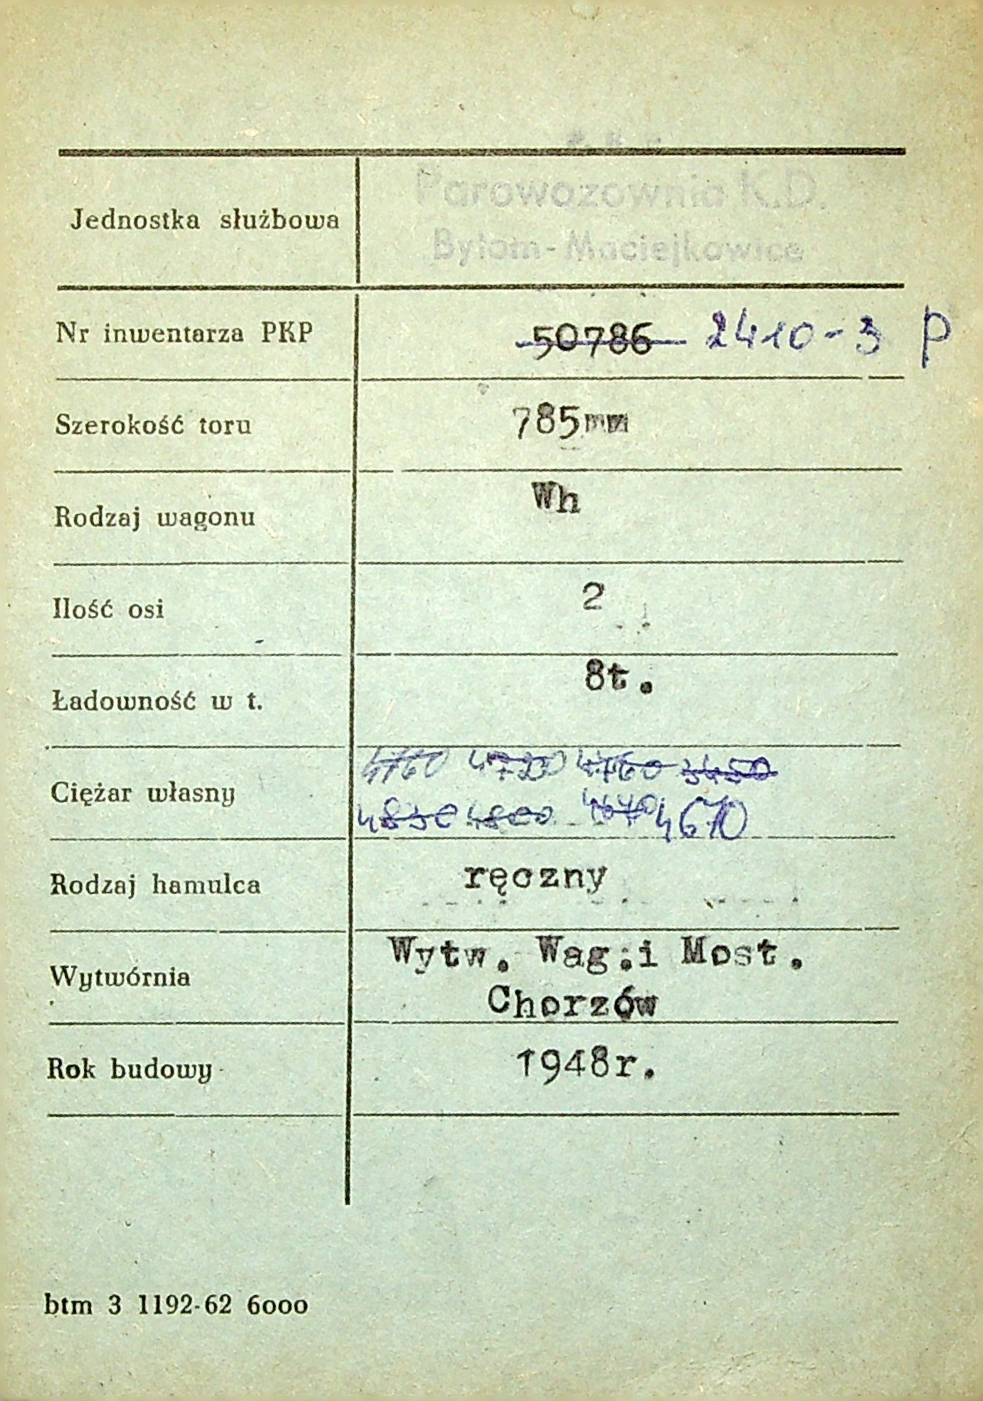 Parowozownia K.D.
Jednostka służbowa
Bytom-Maciejkowice
Nr inwentarza PKP 50786 2410-3 P
Szerokość toru 785mm
Rodzaj wagonu Wh
Ilość osi 2
Ładowność w t. 8t.
4760 4720 4760 3450
Ciężar własny
4830 4800 4670 4610
Rodzaj hamulca ręczny
Wytw. Wag.i Most.
Wytwórnia
Chorzów
Rok budowy 1948r.
btm 3 1192-62 6000